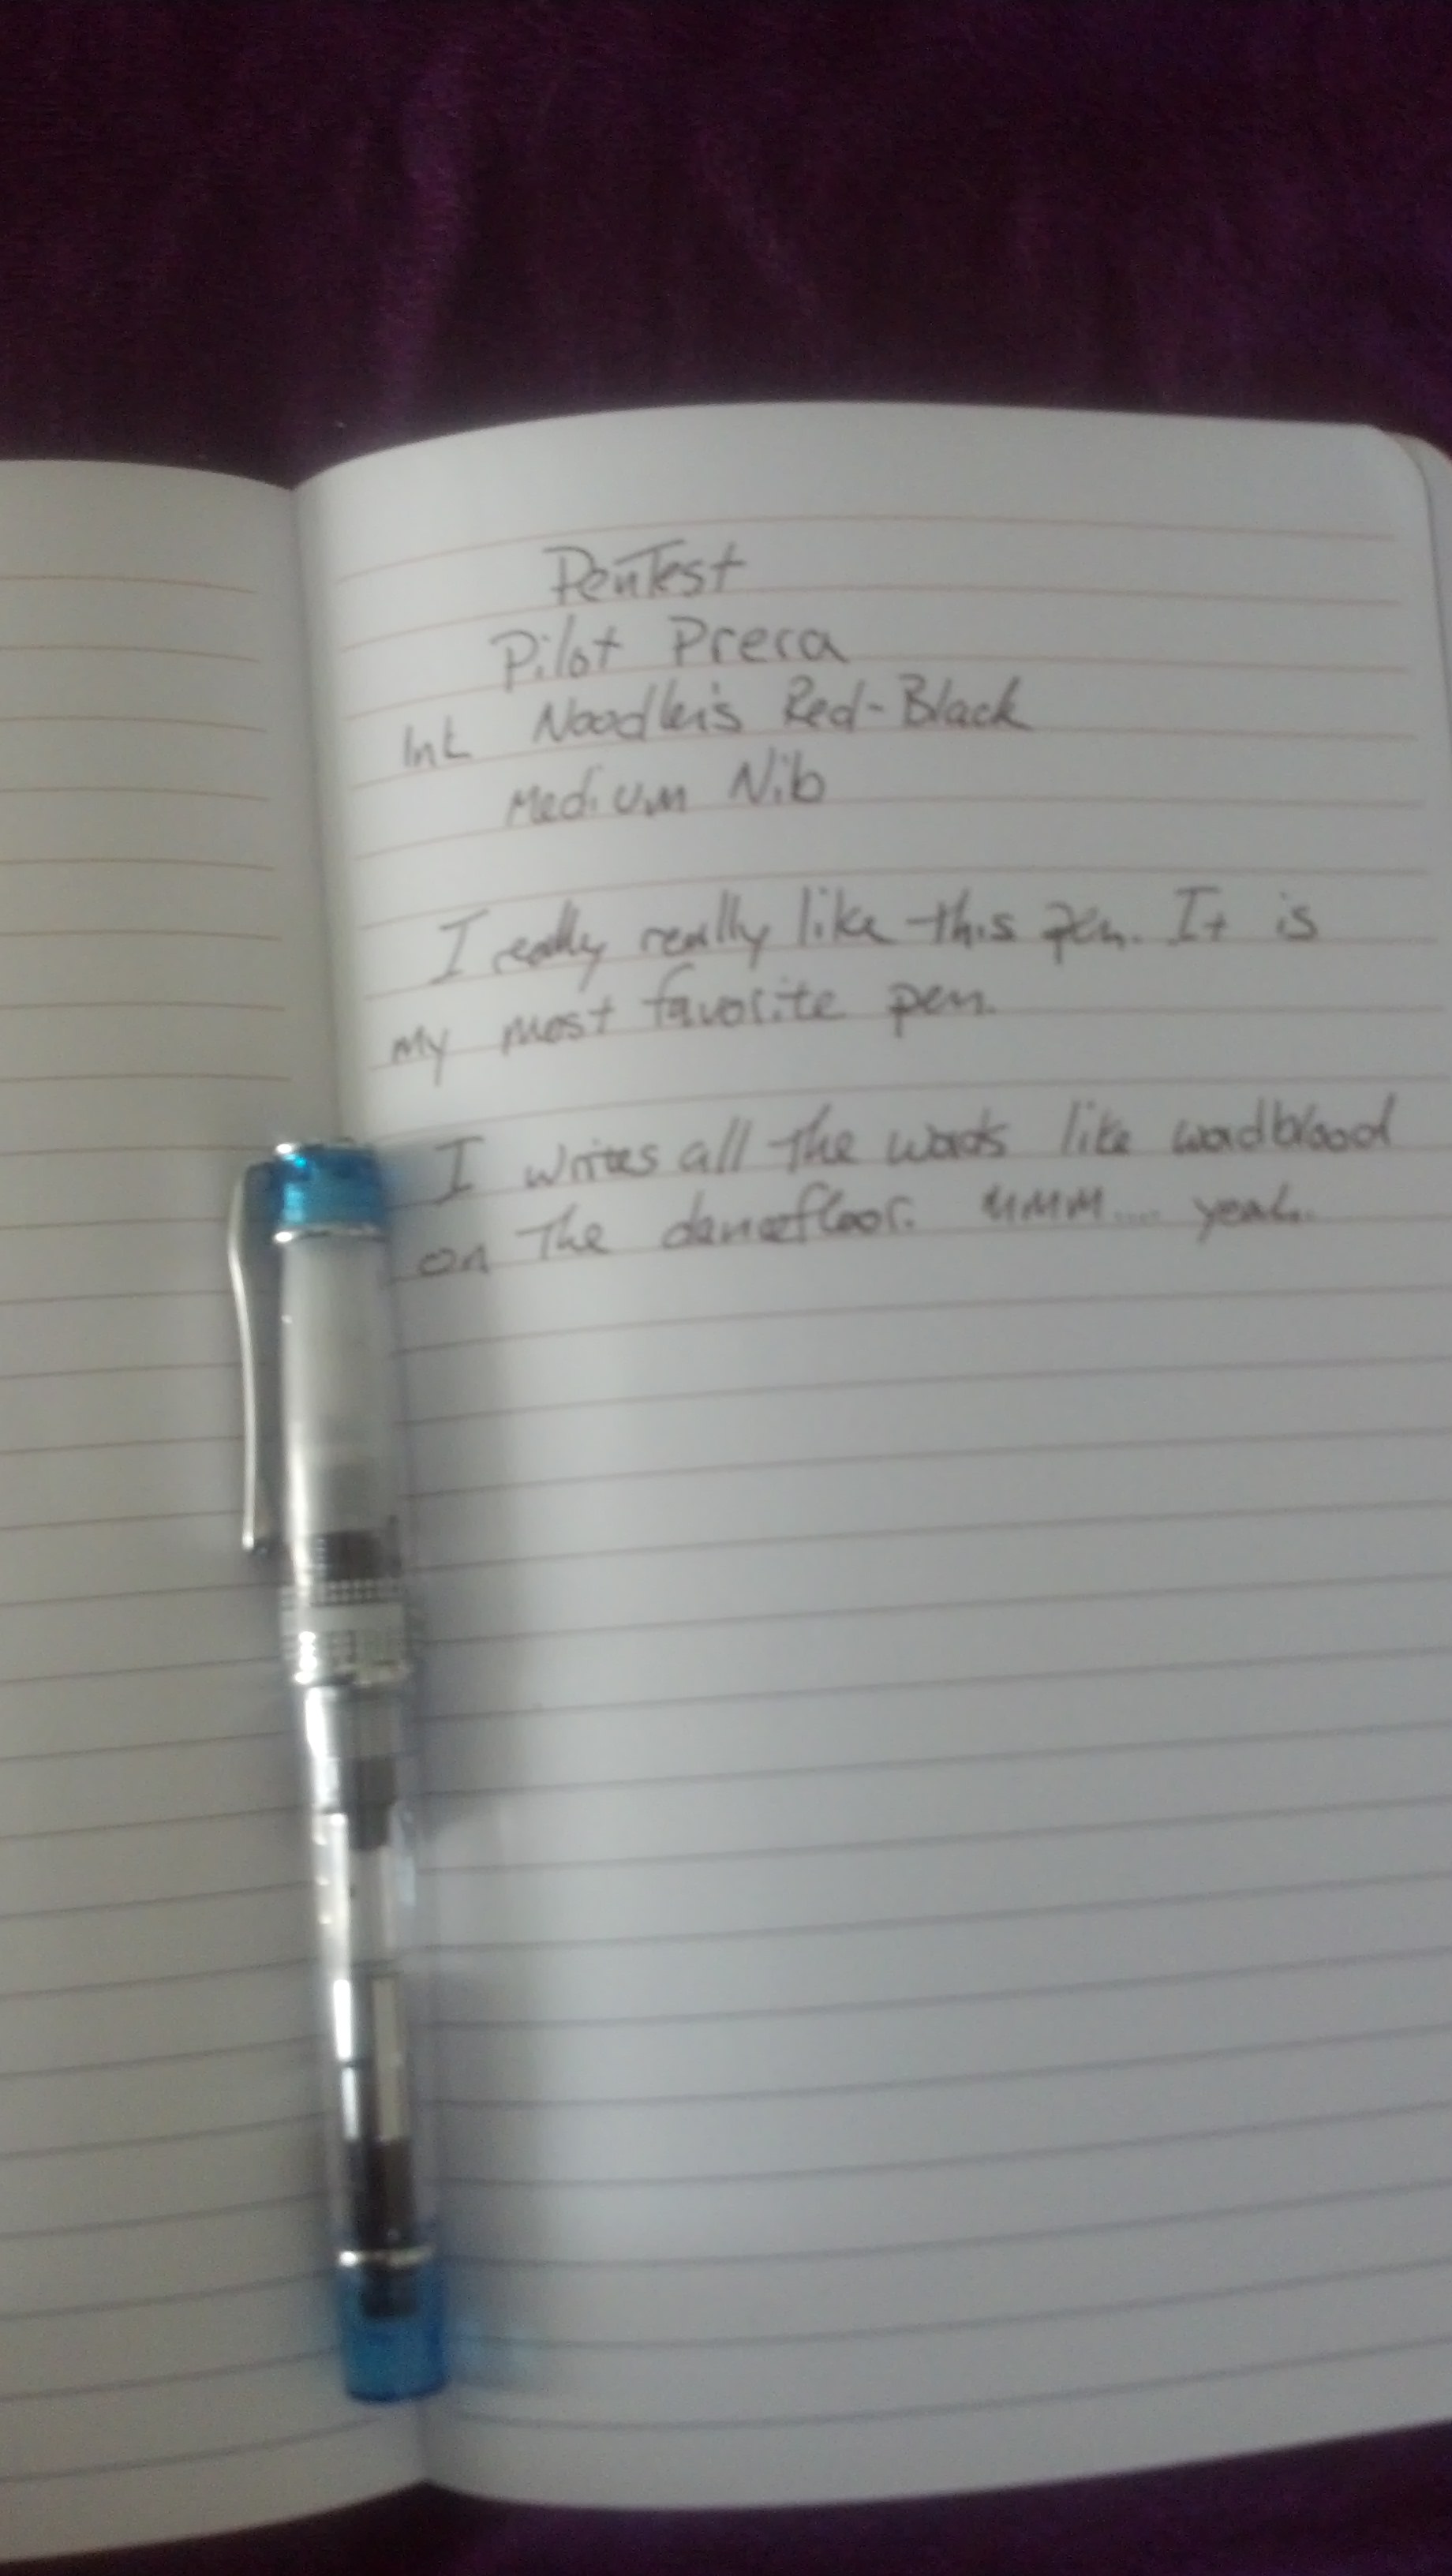 PenTest
Pilot Prera
Ink Noodler's Red-Black
Medium Nib
I really really like this pen. It is
my most favorite pen.
I writes all the words like wordblood
on the dancefloor. MMM.... yeah.